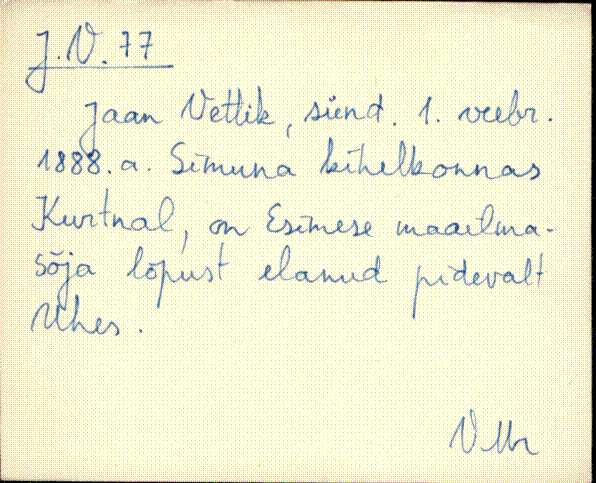 J.V. 77
Jaan Vettik, sünd. 1. veebr.
1888. a. Simuna kihelkonnas
Kurtnal, on Esimese maailma-
sõja lõpust elanud pidevalt
Uhes.
VMr